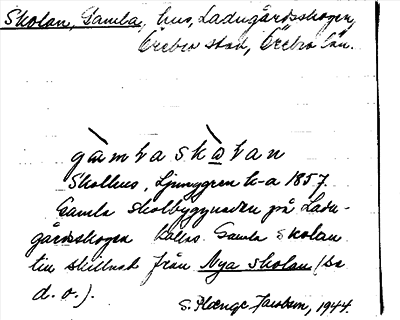 Skolan, Gamla, hus, Ladugårdsskogen,
Örebro stad, Örebro län.
gàmla skòlan
Skolhus, Ljunggren k-a 1857.
Gamla skolbyggnaden på Ladu-
gårdsskogen kallas Gamla skolan
till skillnad från Nya skolan (se
d. o.).
S. Plænge Jacobson, 1944.